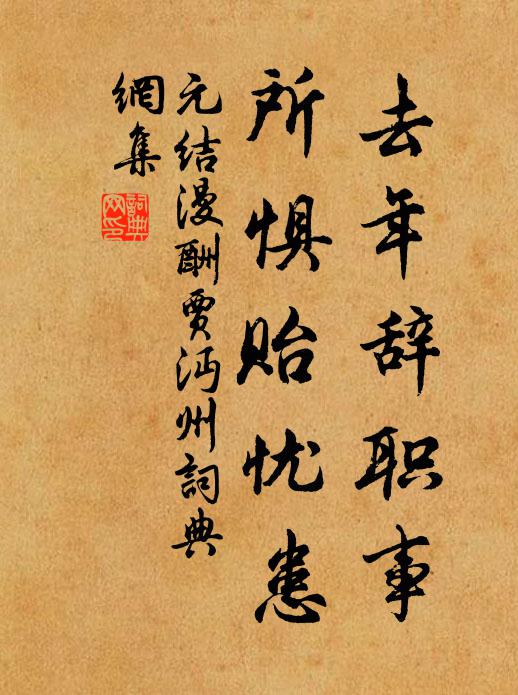 去年辞职事
所惧贻忧患
元结漫酬贾沔州詞典
網集
詞典网印